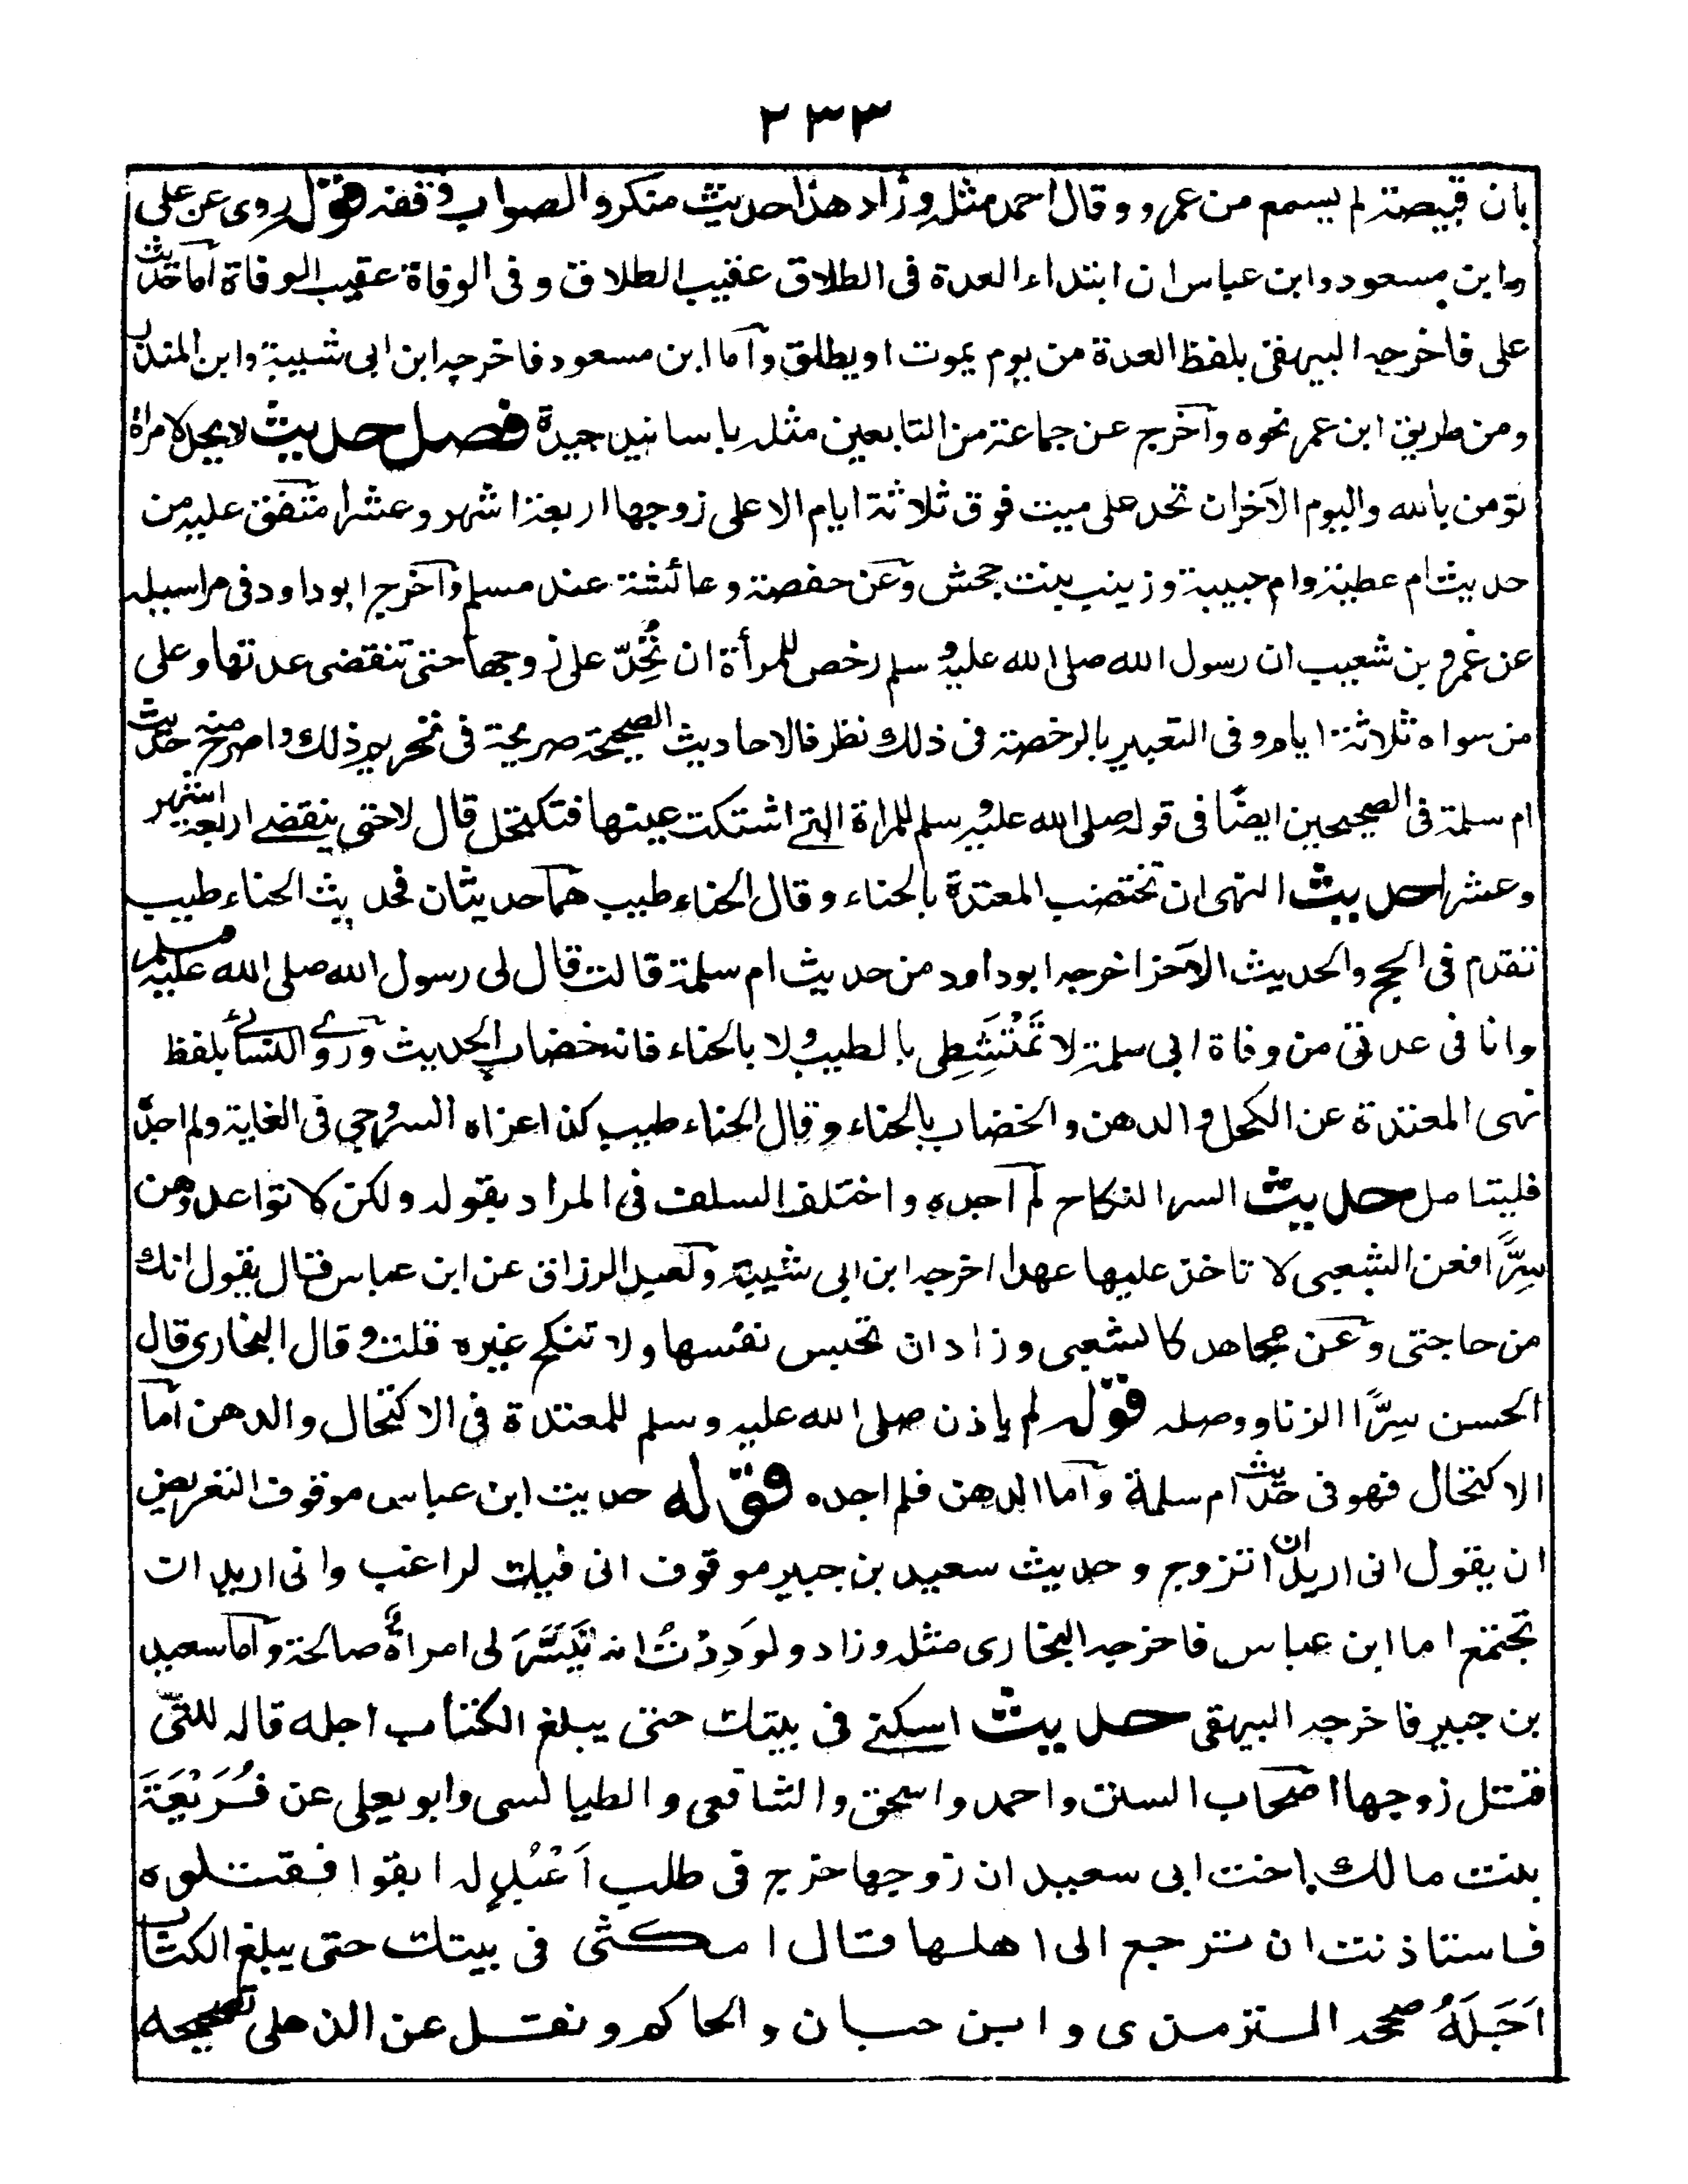 ٢٣٣
بان قبيصة لم يسمع من عمرو وقال احمد مثله وزاد هذا حديث منكر والصواب وقفه قوله روى عن على
وابن مسعود وابن عباس ان ابتداء العدة فى الطلاق عقيب الطلاق وفى الوفاة عقيب الوفاة اما حديث
على فاخرجه البيهقى بلفظ العدة من يوم يموت او يطلق وآما ابن مسعود فاخرجه ابن ابى شيبة وابن المنذر
ومن طريق ابن عمر نحوه وآخرج عن جماعة من التابعين مثله باسانيد جيدة فصل حديث لا يحل لامرأة
تؤمن بالله واليوم الآخر ان تحد على ميت فوق ثلاثة ايام الا على زوجها اربعة اشهر وعشرا متفق عليه من
حديث ام عطية وام حبيبة وزينب بنت جحش وعن حفصة وعائشة عند مسلم وآخرج ابو داود فى مراسيله
عن عمرو بن شعيب ان رسول الله صلى الله عليه وسلم رخص للمرأة ان تُحِدّ على زوجها حتى تنقضى عدتها وعلى
من سواه ثلاثة ايام وفى التعبير بالرخصة فى ذلك نظر فالاحاديث الصحيحة صريحة فى تحريم ذلك واصرح منه حديث
ام سلمة فى الصحيحين ايضًا فى قوله صلى الله عليه وسلم للمراة التے اشتكت عينها فتكتحل قال لا حتى ينقضے اربعة اشهر
وعشرا حديث النهى ان تختضب المعتدة بالحناء وقال الحناء طيب هما حديثان فحديث الحناء طيب
تقدم فى الحج والحديث الآخر اخرجه ابو داود من حديث ام سلمة قالت قال لى رسول الله صلى الله عليه وسلم
وانا فى عدتى من وفاة ابى سلمة لا تَمْتَشِطِى بالطيب ولا بالحناء فانه خضاب الحديث وروے النسائے بلفظ
نهى المعتدة عن الكحل والدهن والخضاب بالحناء وقال الحناء طيب كذا عزاه السروجى فى الغاية ولم اجدّه
فليتامل حديث السر النكاح لم آجده واختلف السلف فى المراد بقوله ولكن لا تواعدوهن
سِرًّا فعن الشعبى لا تاخذ عليها عهدا اخرجه ابن ابى شيبة ولعبد الرزاق عن ابن عباس قال يقول انك
من حاجتى وعن مجاهد كالشعبى وزاد ان تحبس نفسها ولا تنكح غيره قلت وقال البخارى قال
الحسن سِرًّا الزنا ووصله قوله لم ياذن صلى الله عليه وسلم للمعتدة فى الاكتحال والدهن آما
الاكتحال فهو فى حديث ام سلمة وآما الدهن فلم اجده قوله حديث ابن عباس موقوف التعريض
ان يقول انى اريد ان اتزوج وحديث سعيد بن جبير موقوف انى فيك لراغب وانى اريد ان
تجتمع اما ابن عباس فاخرجه البخارى مثله وزاد ولوَدِدْتُ انه تَيَسَّرَ لى امراةٌ صالحة وآما سعيد
بن جبير فاخرجه البيهقى حديث اسكنے فى بيتك حتى يبلغ الكتاب اجله قاله للتى
قتل زوجها اصحاب السنن واحمد واسحق والشافعى والطيالسى وابو يعلى عن فُرَيْعَةَ
بنت مالك اخت ابى سعيد ان زوجها خرج فى طلب اَعْبُدٍ له ابقوا فقتلوه
فاستاذنت ان ترجع الى اهلها قال امكثى فى بيتك حتى يبلغ الكتاب
اَجَلَهُ صححه الترمذى وابن حبان والحاكم ونقل عن الذهلى تصحيحه